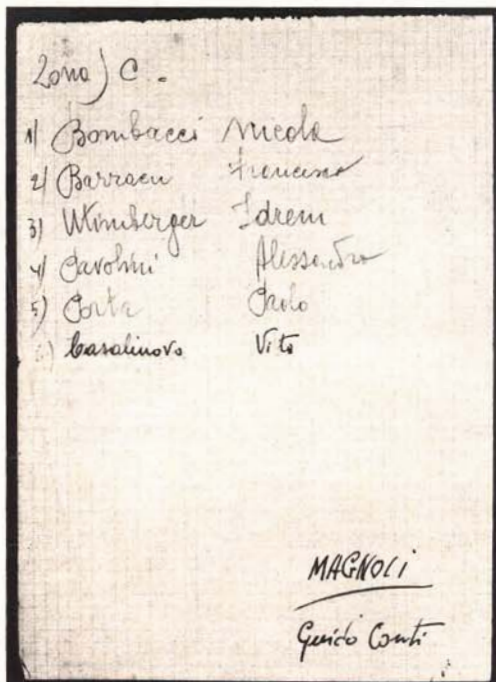 Zona) C.
1) Bombacci Nicola
2) Barracu Francesco
3) Utimberger Idreno
4) Pavolini Alessandro
5) Porta Paolo
6) Casalinovo Vito
MAGNOLI
Guido Conti